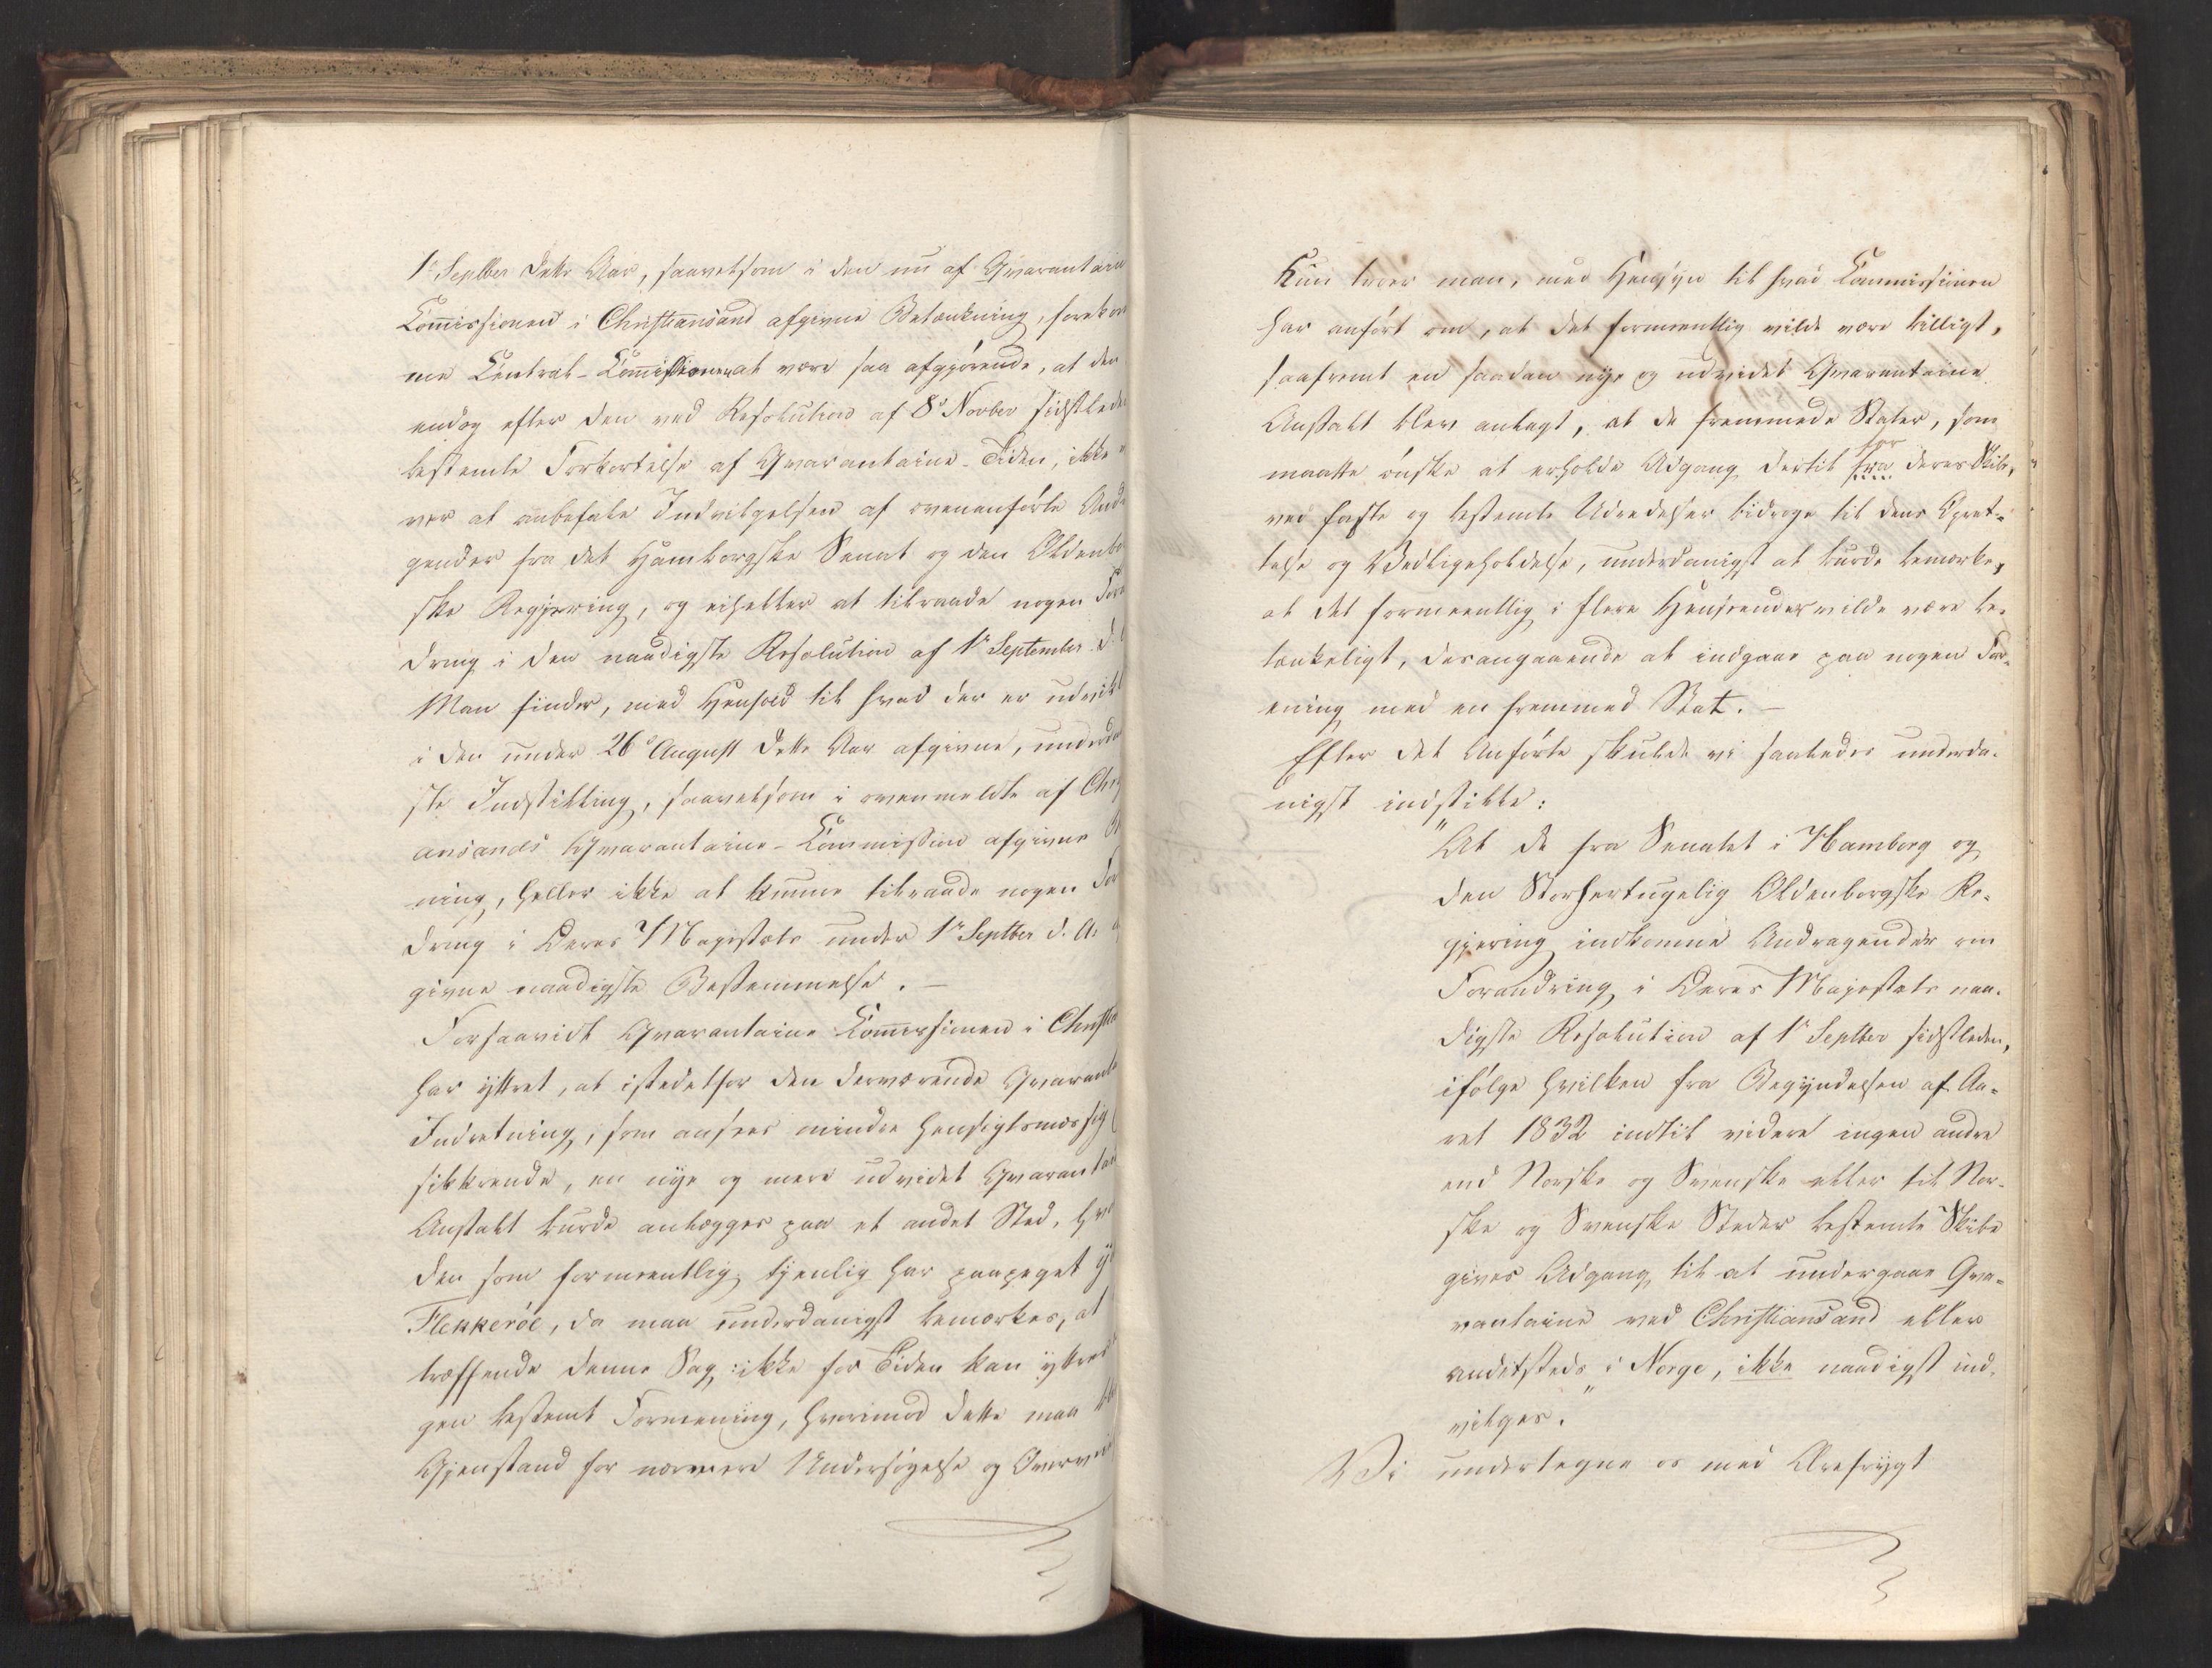 1ste Septber dette Aar, saavelsom i den nu af Qvarantain
Comissionen i Christiansand afgivne Betænkning, forekom
me Central-Comissionen at være saa afgjørende, at den
endog efter den ved Resolution af 8de Novber sidstleden
bestemte Forkortelse af Qvarantaine-Tiden, ikke
ver at anbefale Indvilgelsen af ovenanførte Andra
gender fra det Hamborgske Senat og den Oldenbor
ske Regjering, og eiheller at tilraade nogen Foran
dring i den naadigste Resolution af 1ste September d. A.
Man finder, med Henhold til hvad der er udvikl
i den under 26de August dette Aar afgivne, underdanig
ste Indstilling, saavelsom i ovenmeldte af Christi
ansands Qvarantaine-Commission afgivne Be
ning, heller ikke at kunne tilraade nogen For
dring i Deres Majestæts under 1ste Septber d. A.
givne naadigste Bestemmelse. —
Forsaavidt Qvarantaine Comissionen i Christia
har yttret, at istedetfor den derværende Qvarantai
Indretning, som ansees mindre hensigtsmæssig
sikkrende, en nye og mere udvidet Qvarantai
Anstalt burde anlægges paa et andet Sted, hvor
den som formeentlig tjenlig har paapeget
Flekkerøe, da maa underdanigst bemærkes, at
træffende denne Sag ikke for Tiden kan yttres
gen bestemt Formening, hvorimod dette maa
Gjenstand for nærmere Undersøgelse og Overvei
Kun troer man, med Hensyn til hvad Commissionen
har anført om, at det formeentlig vilde være billigt,
saafremt en saadan nye og udvidet Qvarantaine
Anstalt blev anlagt, at de fremmede Stater, som
maatte ønske at erholde Adgang dertil for fra deres Skibe,
ved faste og bestemte Udredelser bidroge til dens Opret-
telse og Vedligeholdelse, underdanigst at burde bemærke,
at det formeentlig i flere Henseender vilde være be-
tænkeligt, desangaaende at indgaae paa nogen For-
ening med en fremmed Stat. —
Efter det Anførte skulde vi saaledes underda-
nigst indstille:
"At de fra Senatet i Hamborg og
den Storhertugelig Oldenborgske Re-
gjering indkomne Andragender om
Forandring i Deres Majestæts naa-
digste Resolution af 1ste Septber sidstleden,
ifølge hvilken fra Begyndelsen af Aa-
ret 1832 indtil videre ingen andre
end Norske og Svenske eller til Nor-
ske og Svenske Steder bestemte Skibe
gives Adgang til at undergaae Qva-
rantaine ved Christiansand eller
andetsteds i Norge, ikke naadigst ind-
vilges."
Vi undertegne os med Ærefrygt